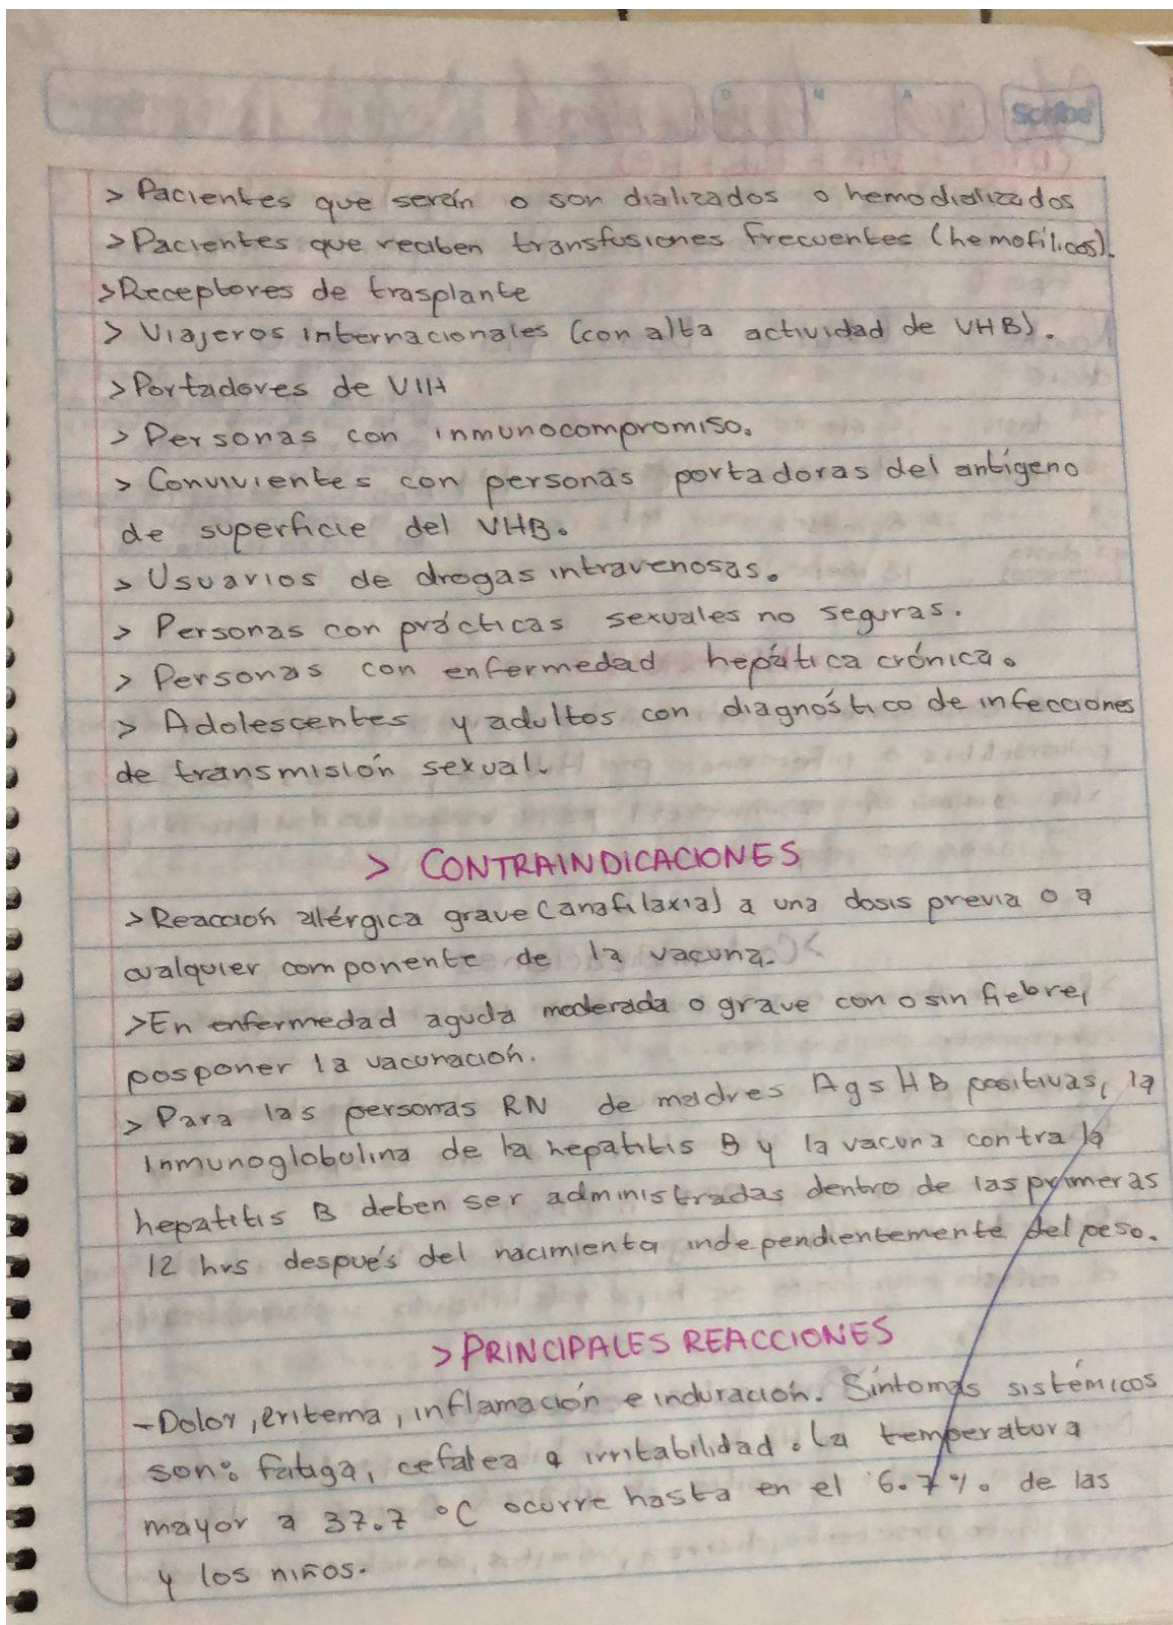 Scribe
> Pacientes que serán o son dializados o hemodializados
> Pacientes que reciben transfusiones frecuentes (hemofílicos).
> Receptores de trasplante
> Viajeros internacionales (con alta actividad de VHB).
> Portadores de VIH
> Personas con inmunocompromiso.
> Convivientes con personas portadoras del antígeno
de superficie del VHB.
> Usuarios de drogas intravenosas.
> Personas con prácticas sexuales no seguras.
> Personas con enfermedad hepática crónica.
> Adolescentes y adultos con diagnóstico de infecciones
de transmisión sexual.
> CONTRAINDICACIONES
> Reacción alérgica grave (anafilaxia) a una dosis previa o a
cualquier componente de la vacuna.
> En enfermedad aguda moderada o grave con o sin fiebre,
posponer la vacunación.
> Para las personas RN de madres AgsHB positivas, la
inmunoglobulina de la hepatitis B y la vacuna contra la
hepatitis B deben ser administradas dentro de las primeras
12 hrs después del nacimiento independientemente del peso.
> PRINCIPALES REACCIONES
- Dolor, eritema, inflamación e induración. Síntomas sistémicos
son: fatiga, cefalea e irritabilidad. La temperatura
mayor a 37.7 °C ocurre hasta en el 6.7%. de las
y los niños.